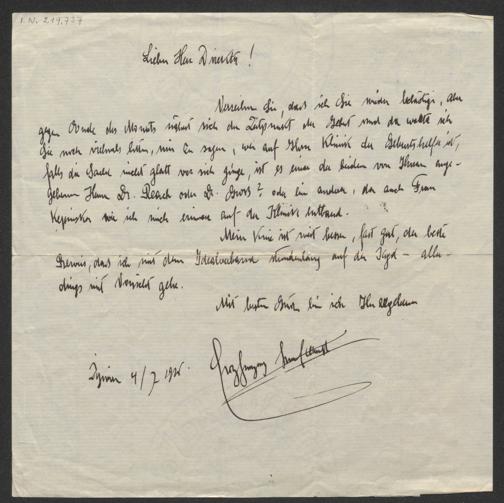 I.N. 219.737
Lieber Herr Direktor!
Verzeihen Sie, dass ich Sie wieder belästige, aber
gegen Ende des Monats nähert sich der Zeitpunkt der Geburt und da wollte ich
Sie noch vielmals bitten, mir zu sagen, wer auf Ihrer Klinik der Geburtshelfer ist,
falls die Sache nicht glatt vor sich ginge, ist es einer der beiden von Ihnen ange-
gebenen Herrn Dr. oder Dr. Gross? oder ein anderer, da auch Frau
wie ich mich erinnere auf der Klinik entband.
Mein Knie ist viel besser, fast gut, der beste
Beweis, dass ich mit dem Idealverband stundenlang auf die Jagd – aller-
dings mit Vorsicht gehe.
Mit besten Grüßen bin ich Ihr ergebener
4/7